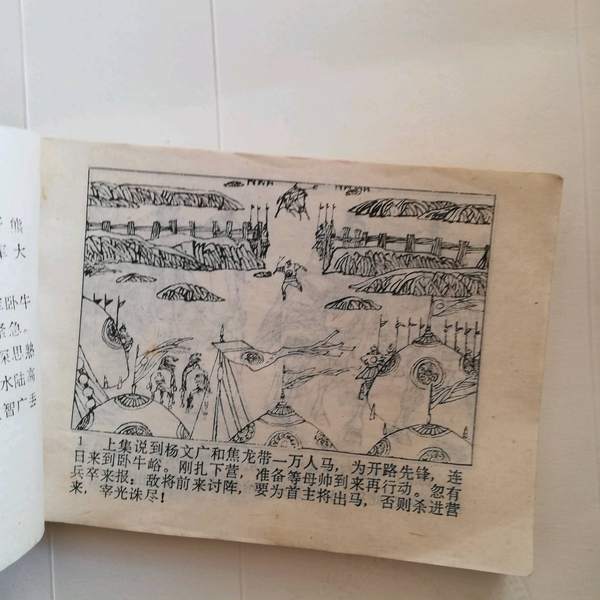 熊
大
卧牛
急。
深思熟
水陆高
智广丢
1 上集说到杨文广和焦龙带一万人马，为开路先锋，连
日来到卧牛峪。刚扎下营，准备等母帅到来再行动。忽有
兵卒来报：敌将前来讨阵，要为首主将出马，否则杀进营
来，宰光诛尽！